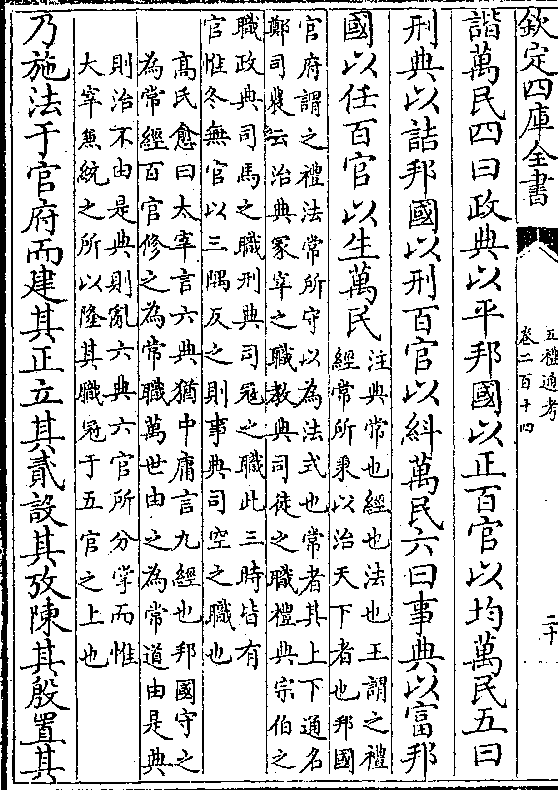 欽定四庫全書
五禮通考
卷二百十四
二十
諧萬民四曰政典以平邦國以正百官以均萬民五曰
刑典以詰邦國以刑百官以糾萬民六曰事典以富邦
國以任百官以生萬民
注典常也經也法也王謂之禮
經常所秉以治天下者也邦國
官府謂之禮法常所守以為法式也常者其上下通名
鄭司農云治典冢宰之職教典司徒之職禮典宗伯之
職政典司馬之職刑典司冦之職此三時皆有
官惟冬無官以三隅反之則事典司空之職也
髙氏愈曰太宰言六典猶中庸言九經也邦國守之
為常經百官修之為常職萬世由之為常道由是典
則治不由是典則亂六典六官所分掌而惟
大宰兼統之所以隆其職冠于五官之上也
乃施法于官府而建其正立其貳設其攷陳其殷置其